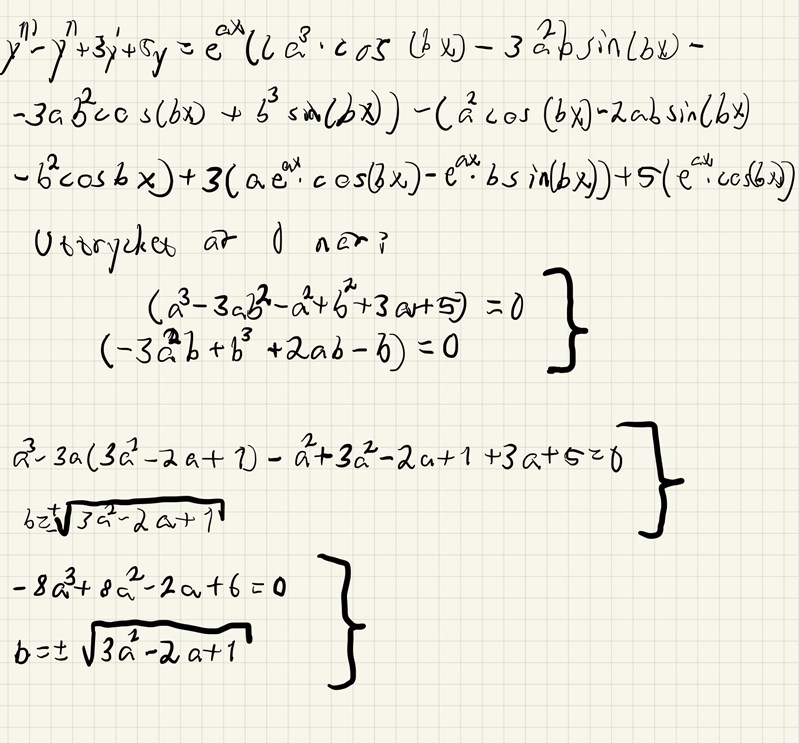 y''' - y'' + 3y' + 5y = e^{ax}((a^3 · cos (bx) - 3a^2b sin(bx) -
- 3ab^2 cos(bx) + b^3 sin(bx)) - (a^2 cos (bx) - 2ab sin(bx)
- b^2 cos bx) + 3(ae^{ax} · cos(bx) - e^{ax} · b sin(bx)) + 5(e^{ax} · cos(bx))
Uttrycket är 0 när:
(a^3 - 3ab^2 - a^2 + b^2 + 3a + 5) = 0
(-3a^2b + b^3 + 2ab - b) = 0 }
a^3 - 3a(3a^2 - 2a + 1) - a^2 + 3a^2 - 2a + 1 + 3a + 5 = 0
b = ±√(3a^2 - 2a + 1) }
-8a^3 + 8a^2 - 2a + 6 = 0
b = ± √(3a^2 - 2a + 1) }